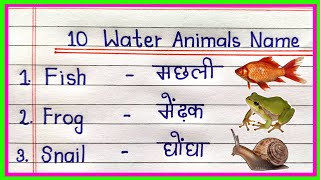 10 Water Animals Name
1. Fish - मछली
2. Frog - मेंढ़क
3. Snail - घोंघा